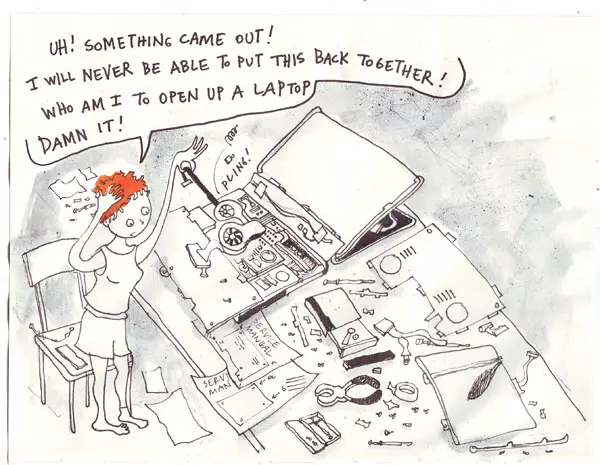 UH! SOMETHING CAME OUT!
I WILL NEVER BE ABLE TO PUT THIS BACK TOGETHER!
WHO AM I TO OPEN UP A LAPTOP
DAMN IT!
PLING!
SERVICE
MANUAL
SERV
MAN
a
b